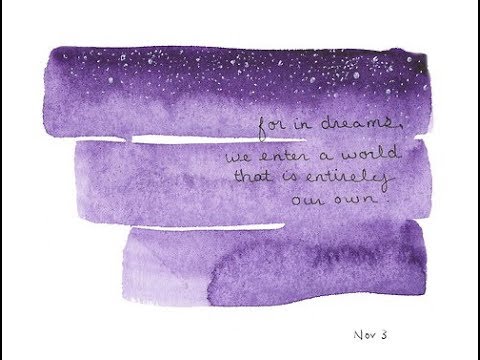 for in dreams,
we enter a world
that is entirely
our own.
Nov 3